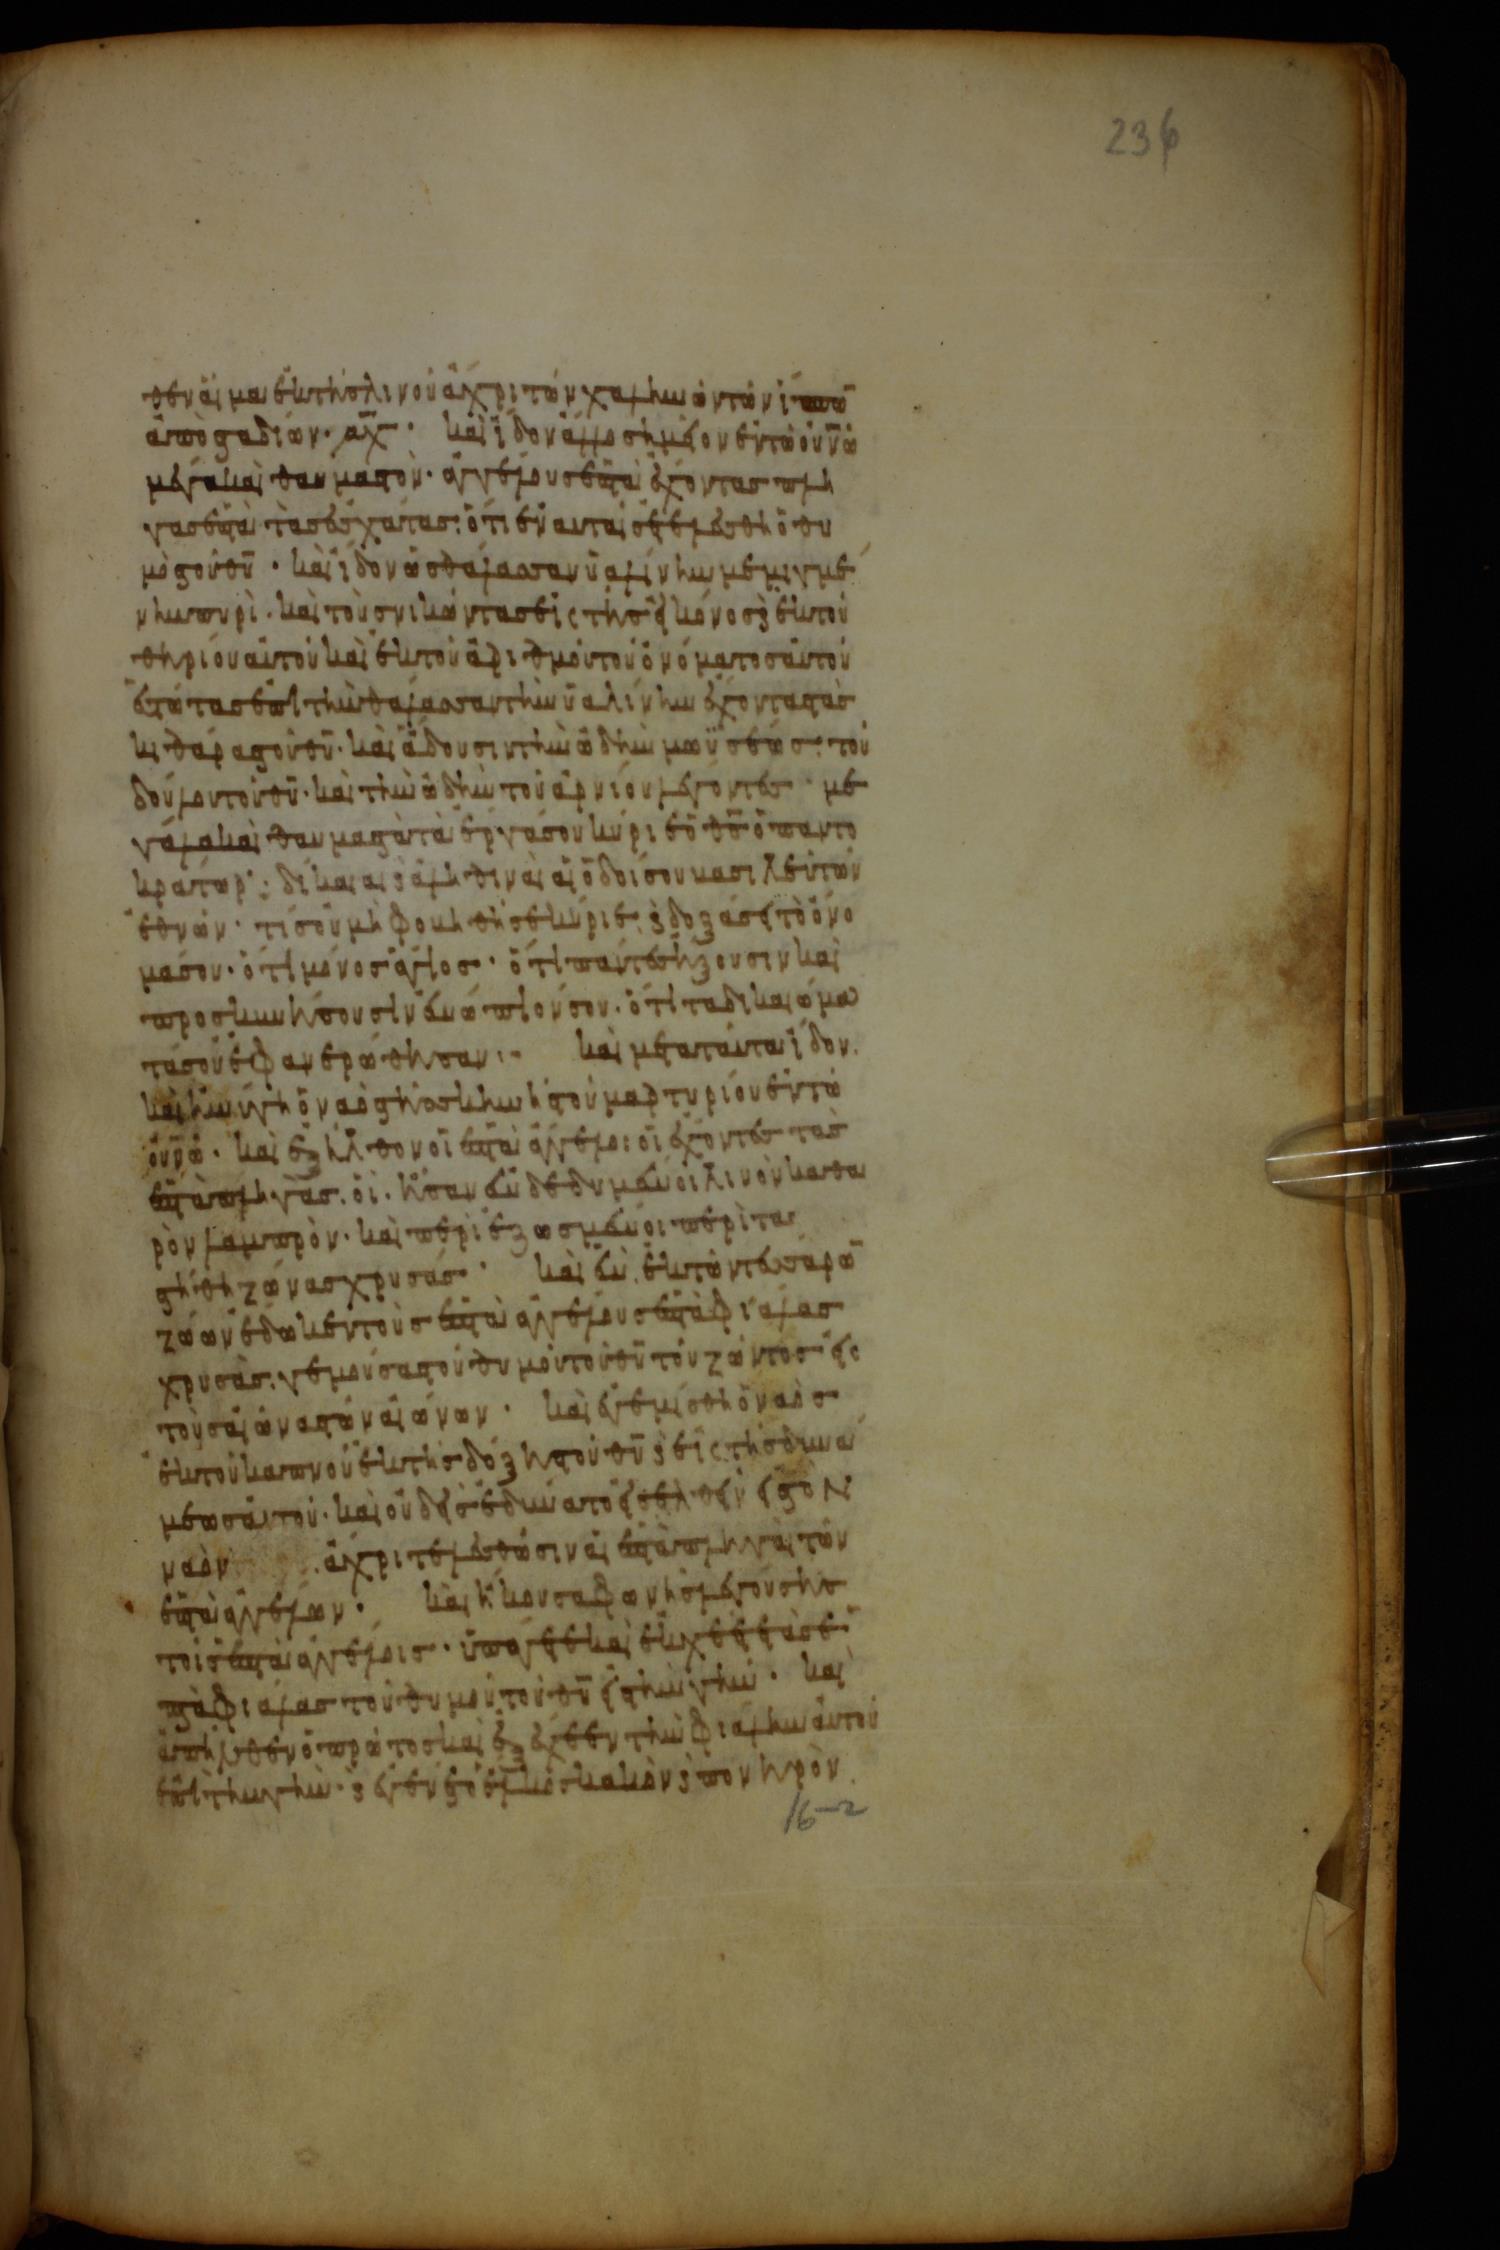 236
θεν αἷμα ἐκ τῆς λινοῦ ἄχρι τῶν χαλινῶν τῶν ἵππω̅
ἀπὸ σταδίων· ͵αχ· καὶ ἴδον ἄλλο σημεῖον ἐν τῶ οὐν̅ῶ
μέγα καὶ θαυμαστὸν· ἀγγέλους ἑπτὰ ἔχοντας πλη
γὰς ἑπτὰ τὰς ἐσχάτας· ὅτι ἐν αὐταῖς ἐτελέσθη ὁ θυ
μὸς τοῦ θυ̅· καὶ ἴδον ὡς θάλασσαν ὑαλίνην μεμιγμέ
νην πυρὶ· καὶ τοὺς νικῶντας εἰς τῆς εἰκόνος ϗ ἐκ τοῦ
θηρίου αὐτοῦ καὶ ἐκ τοῦ ἀριθμοῦ τοῦ ὀνόματος αὐτοῦ
ἑστῶτας ἐπὶ τὴν θάλασσαν τὴν ὑαλίνην ἔχοντας τὰς
κιθάρας τοῦ θυ̅· καὶ ἄδουσιν τὴν ὠδὴν μωϋσέως· τοῦ
δούλου τοῦ θυ̅· καὶ τὴν ὠδὴν τοῦ ἀρνίου λέγοντες· με
γάλα καὶ θαυμαστὰ τὰ ἔργα σου κύριε ὁ θς̅ ὁ παντο
κράτωρ· δίκαιαι ϗ ἀληθιναὶ αἱ ὁδοί σου βασιλεῦ τῶν
ἐθνῶν· τίς οὐ μὴ φοβηθῆ σε κύριε· ϗ δοξάσει τὸ ὄνο
μά σου· ὅτι μόνος ἅγιος· ὅτι πάντες ἥξουσιν καὶ
προσκυνήσουσιν ἐνώπιόν σου· ὅτι τὰ δικαιώμα
τά σου ἐφανερώθησαν· καὶ μετὰ ταῦτα ἴδον·
καὶ ἠνύγη ὁ ναὸς τῆς σκηνῆς τοῦ μαρτυρίου ἐν τῶ
οὐν̅ῶ· καὶ ἐξῆλθον οἱ ἑπτὰ ἄγγελοι οἱ ἔχοντες τὰς
ἑπτὰ πληγὰς· οἳ ἦσαν ἐνδεδυμένοι λινὸν καθα
ρὸν λαμπρὸν· καὶ περιεζωσμένοι περὶ τὰ
στήθη ζώνας χρυσᾶς· καὶ ἓν ἐκ τῶν τεσσάρω̅
ζώων ἔδωκεν τοὺς ἑπτὰ ἀγγέλους ἑπτὰ φιάλας
χρυσᾶς· γεμούσας τοῦ θυμοῦ τοῦ θυ̅ τοῦ ζῶντος εἰς
τοὺς αἰῶνας τῶν αἰώνων· καὶ ἐγεμίσθη ὁ ναὸς
ἐκ τοῦ καπνοῦ ἐκ τῆς δόξης τοῦ θυ̅ ϗ εἰς τῆς δυνά
μεως αὐτοῦ· καὶ οὐδεὶς ἐδύνατο εἰσελθεῖν εἰς τὸν
ναὸν ἄχρι τελεσθῶσιν αἱ ἑπτὰ πληγαὶ τῶν
ἑπτὰ ἀγγέλων· καὶ ἤκουσα φωνῆς λεγούσης
τοῖς ἑπτὰ ἀγγέλοις· ὑπάγετε καὶ ἐκχέετε τὰς ἑ
πτὰ φιάλας τοῦ θυμοῦ τοῦ θυ̅ εἰς τὴν γῆν· καὶ
ἀπῆλθεν ὁ πρῶτος καὶ ἐξέχεεν τὴν φιάλην αὐτοῦ
ἐπὶ τὴν γῆν· ϗ ἐγένετο ἕλκος κακὸν ϗ πονηρὸν
16-2